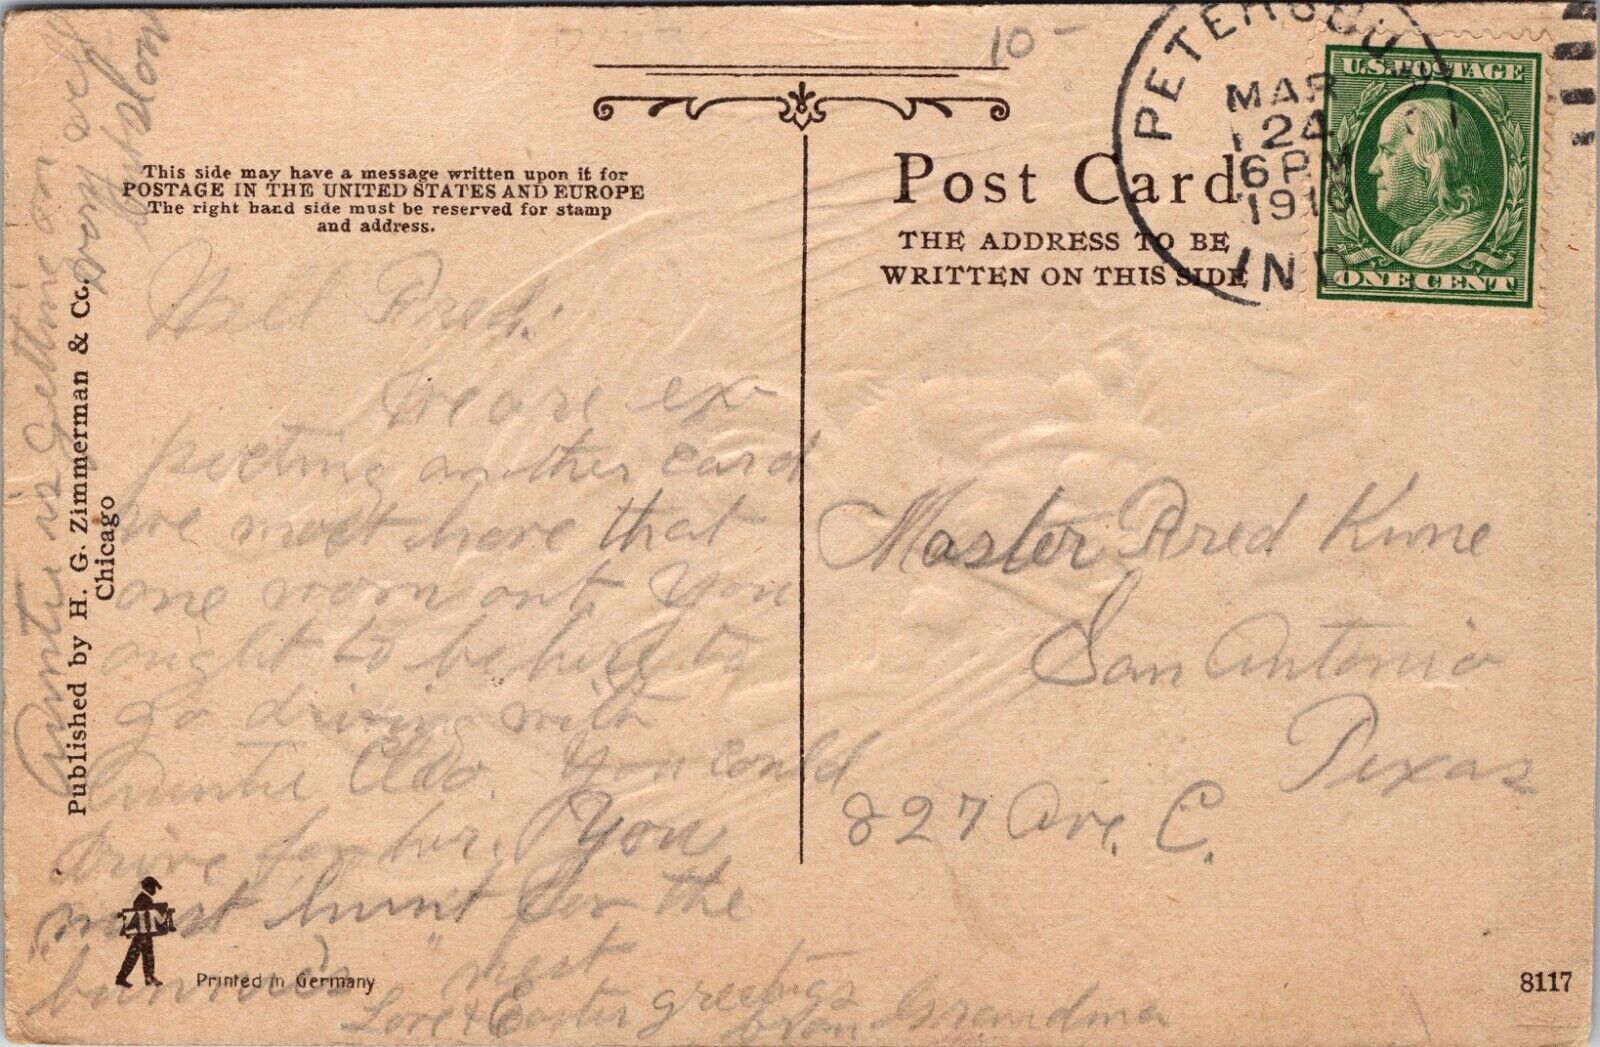 10-
PETERSBU
MAR
24
6PM
1910
IND
U.S. POSTAGE
ONE CENT
This side may have a message written upon it for
POSTAGE IN THE UNITED STATES AND EUROPE
The right hand side must be reserved for stamp
and address.
Post Card
THE ADDRESS TO BE
WRITTEN ON THIS SIDE
Well Fred.
We are ex
pecting another card
we most have that
one worn out, You
ought to be here to
go driving with
Auntie Clio. You could
drive for her. You
must hunt for the
"bunnie's" nest
Love & Easter greetings
from Grandma
Auntie is getting on well
very
but slow
Master Fred Kune
San Antonio
Texas
827 Ave. C.
Published by H. G. Zimmerman & Co.
Chicago
ZIM
Printed in Germany
8117